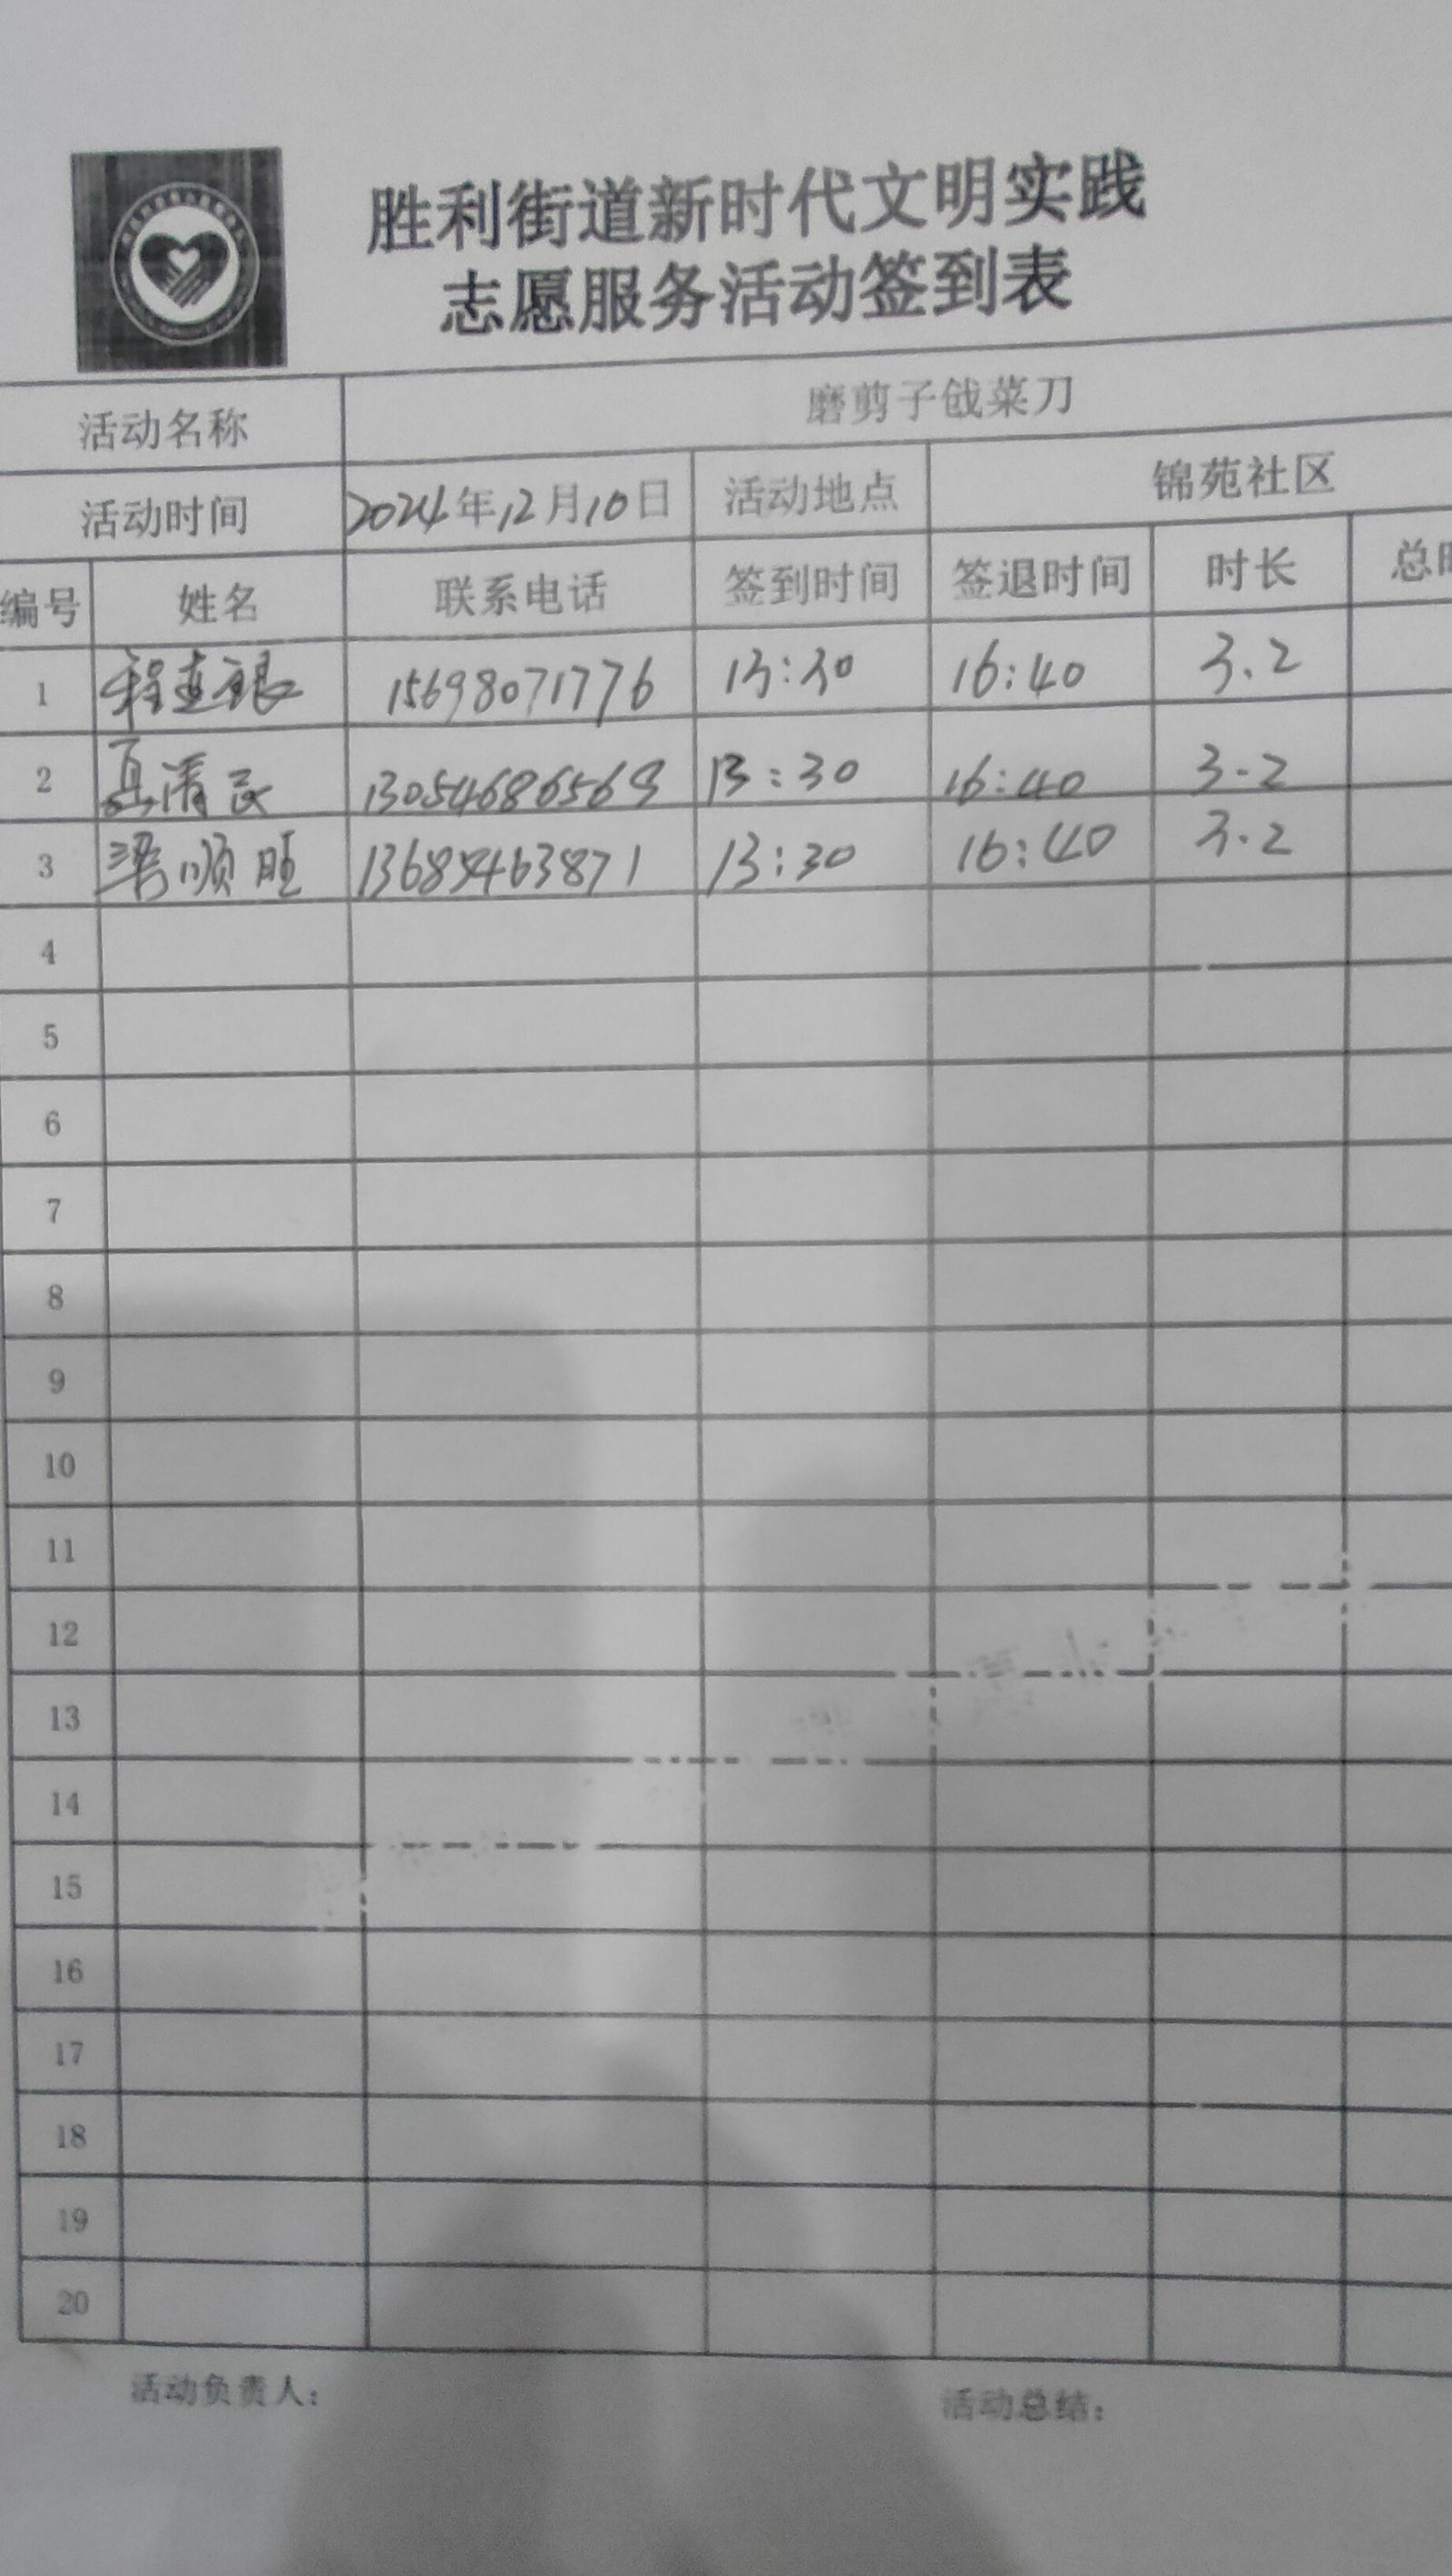 胜利街道新时代文明实践
志愿服务活动签到表
活动名称 磨剪子戗菜刀
活动时间 2024年12月10日 活动地点 锦苑社区
编号 姓名 联系电话 签到时间 签退时间 时长 总时
1 程连银 15698071776 13:30 16:40 3.2
2 清民 13054686569 13:30 16:40 3.2
3 梁顺旺 13685463871 13:30 16:40 3.2
4
5
6
7
8
9
10
11
12
13
14
15
16
17
18
19
20
活动负责人: 活动总结: